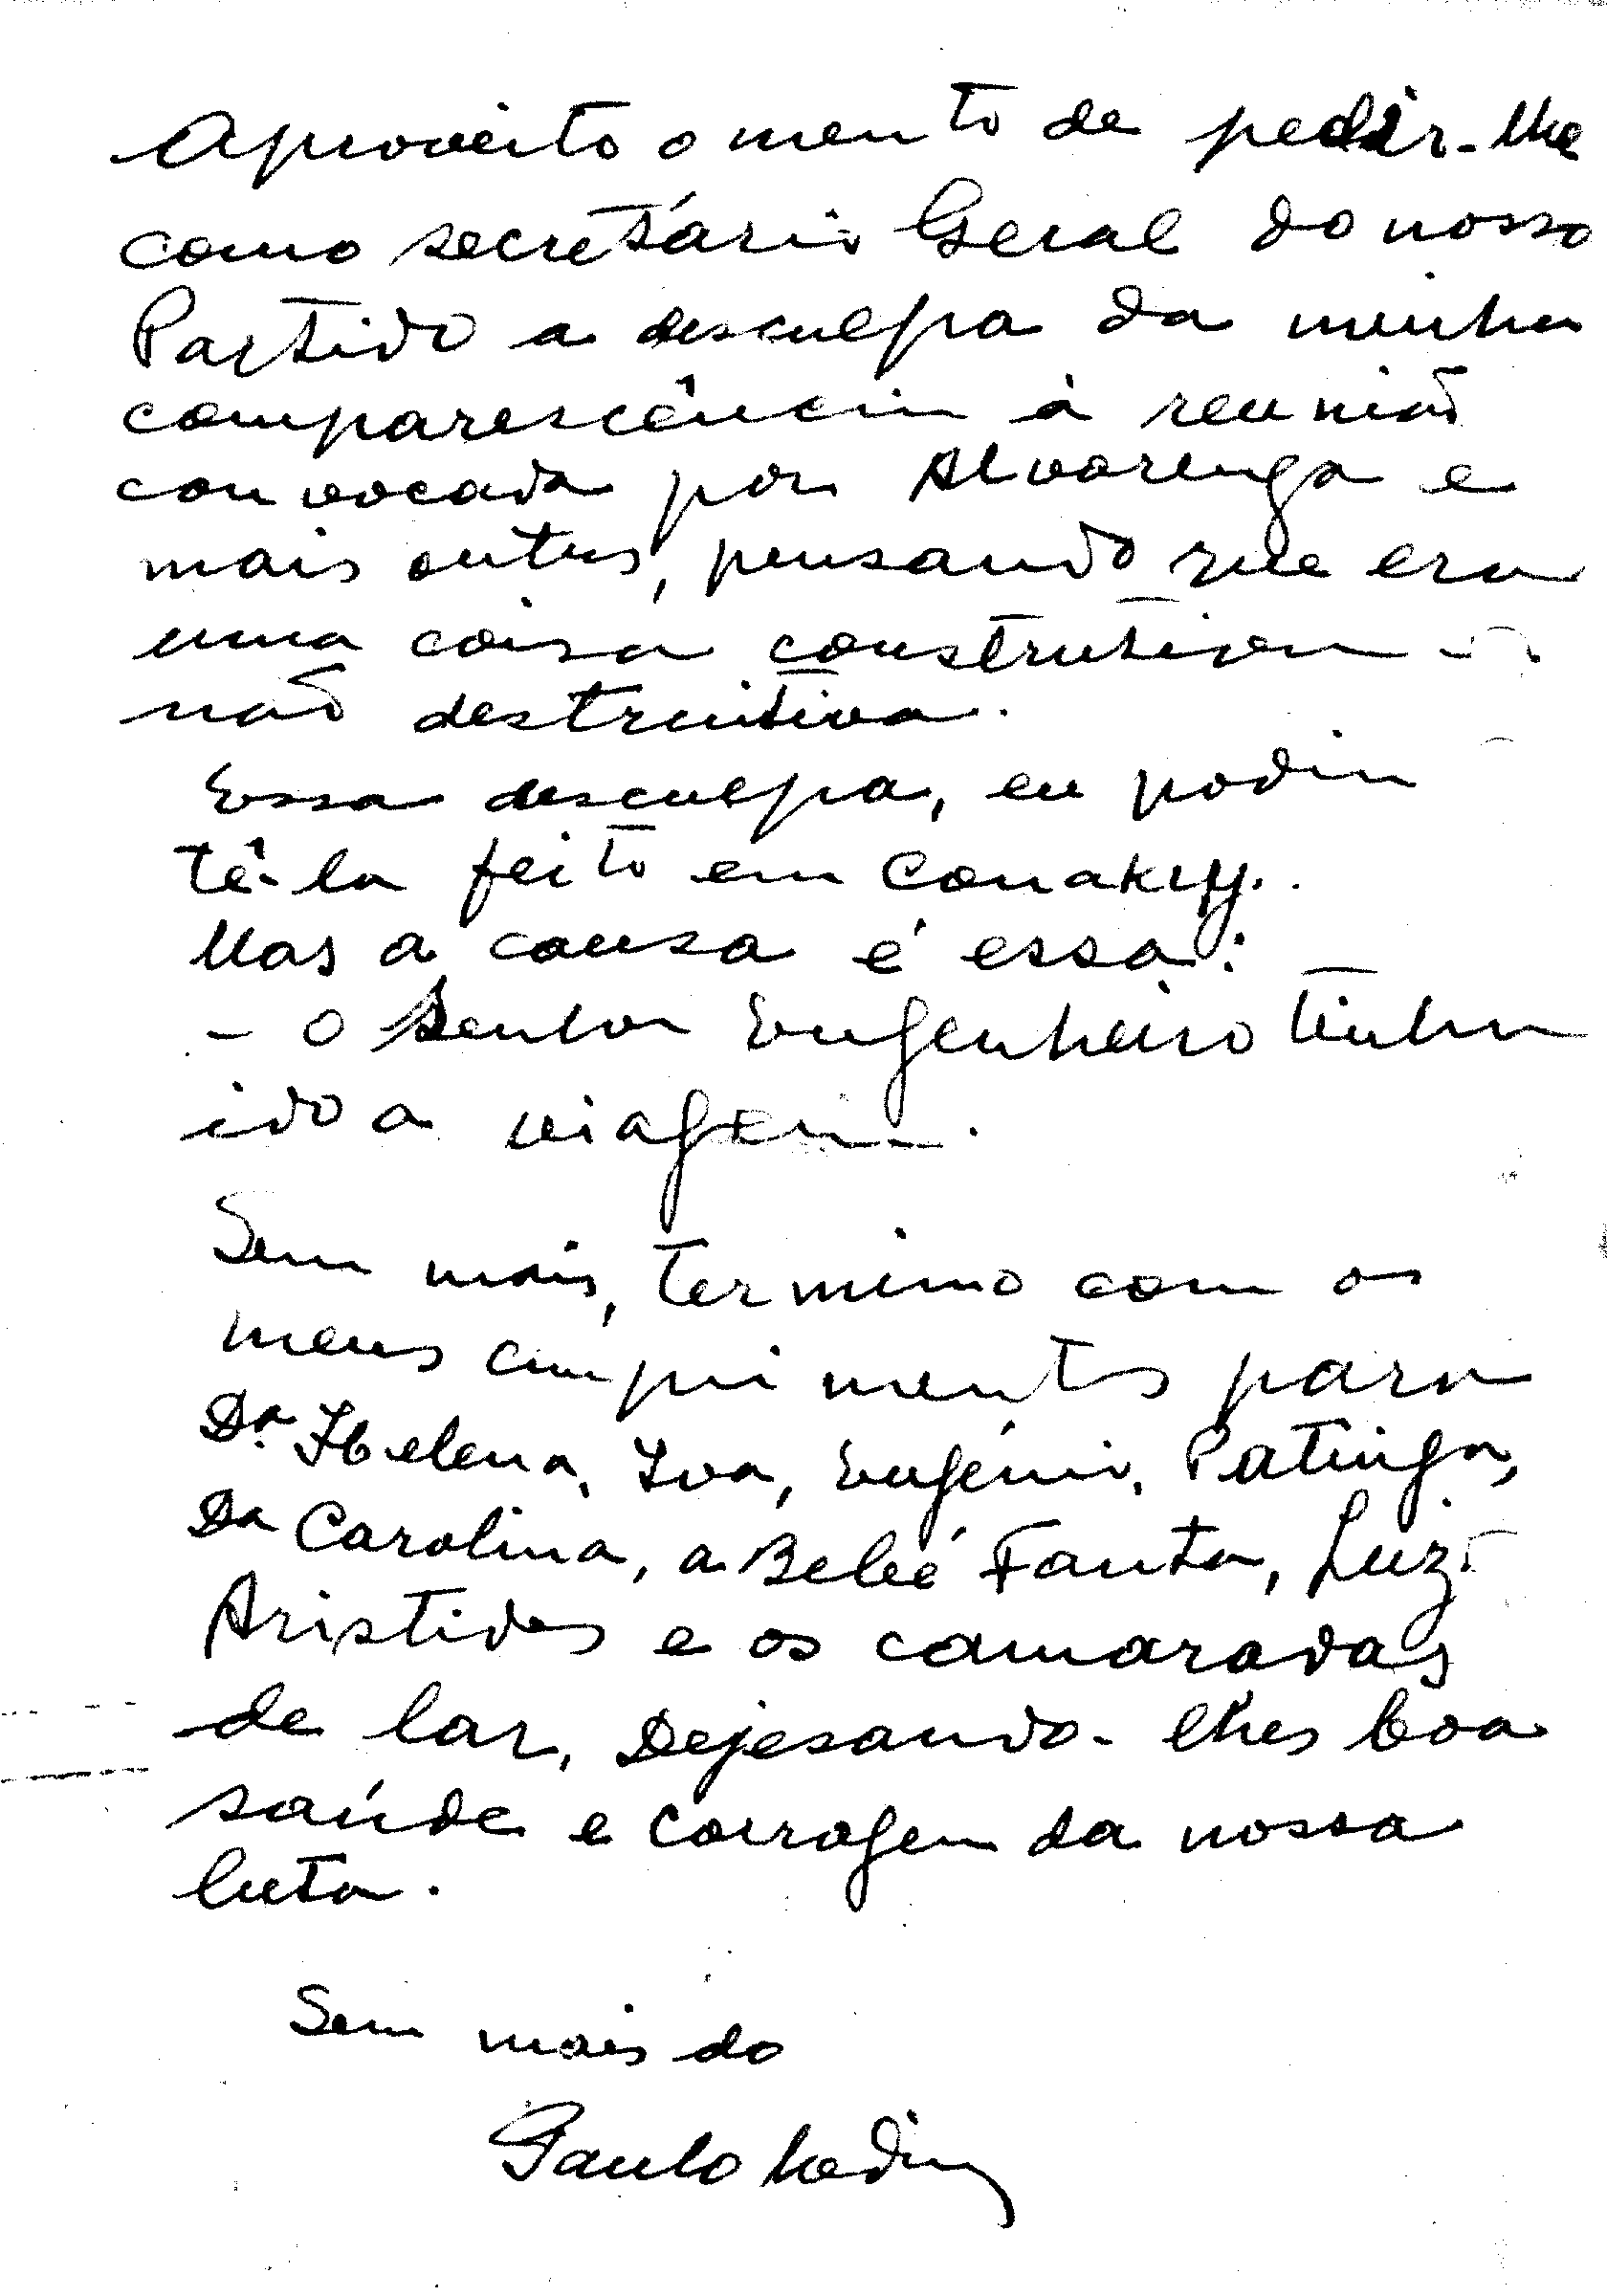 Aproveito o mento de pedir-lhe
como secretário Geral do nosso
Partido a desculpa da minha
comparescência à reunião
convocada por Alvarenga e
mais outros, pensando que era
uma coisa construtiva
não destruitiva.
Essa desculpa, eu podia
tê-la feito em Conakry.
Mas a causa é essa:
- O Senhor Engenheiro tinha
ido a viagem.
Sem mais, termino com os
meus cumprimentos para
Da. Helena, Iva, Eugénio, Patinga,
Da Carolina, a Bebé Fanta, Luiz
Aristides e os camaradas
de lar, Dejesando-lhes boa
saúde e corragem da nossa
luta.
Sem mais do
Paulo